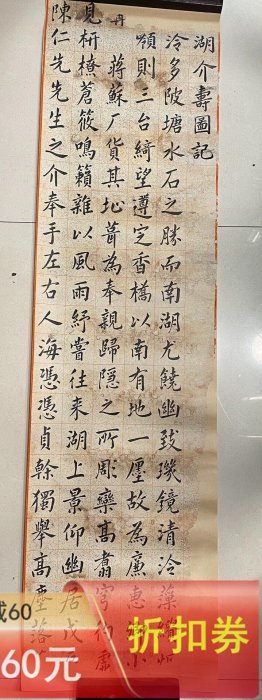 湖介壽圖記
泠多陂塘水石之勝而南湖尤饒幽致瑛鏡清泠藻
嶺則三台綺望遵定香橋以南有地一廛故為廉惠
丹
蔣蘇厂貨其址葺為奉親歸隱之所彫欒高翥
見枅橑蒼筱鳴籟雜以風雨紓嘗往来湖上景仰幽居戊
陳仁先先生之介奉手左右人海憑憑貞榦獨舉高塵落
60
60元
折扣券